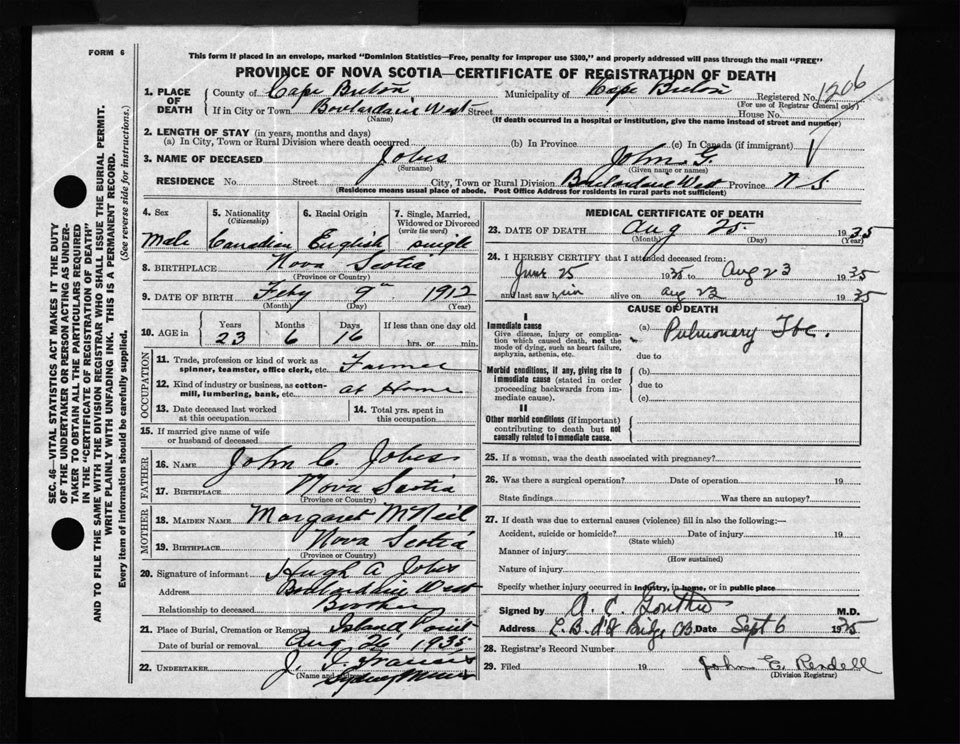 FORM 6
This form if placed in an envelope, marked "Dominion Statistics—Free, penalty for improper use $300," and properly addressed will pass through the mail "FREE"
PROVINCE OF NOVA SCOTIA—CERTIFICATE OF REGISTRATION OF DEATH
1. PLACE OF DEATH { County of Cape Breton Municipality of Cape Breton Registered No. 1206
(For use of Registrar General only)
If in City or Town Boulardarie West Street House No.
(Name) (If death occurred in a hospital or institution, give the name instead of street and number)
2. LENGTH OF STAY (in years, months and days)
(a) In City, Town or Rural Division where death occurred (b) In Province (c) In Canada (if immigrant)
3. NAME OF DECEASED Jobes John G.
(Surname) (Given name or names)
RESIDENCE No. Street City, Town or Rural Division Boulardarie West Province N S.
(Residence means usual place of abode. Post Office Address for residents in rural parts not sufficient)
4. Sex 5. Nationality (Citizenship) 6. Racial Origin 7. Single, Married, Widowed or Divorced (write the word)
Male Canadian English single
8. BIRTHPLACE Nova Scotia
(Province or Country)
9. DATE OF BIRTH 9" 1912
(Month) (Day) (Year)
10. AGE in Years Months Days If less than one day old
23 6 16 hrs. or min.
OCCUPATION
11. Trade, profession or kind of work as spinner, teamster, office clerk, etc. Farmer
12. Kind of industry or business, as cotton-mill, lumbering, bank, etc. at Home
13. Date deceased last worked at this occupation 14. Total yrs. spent in this occupation
15. If married give name of wife or husband of deceased
FATHER
16. NAME John C. Jobes
17. BIRTHPLACE Nova Scotia
(Province or Country)
MOTHER
18. MAIDEN NAME Margaret McNeil
19. BIRTHPLACE Nova Scotia
(Province or Country)
20. Signature of informant Hugh A Jobes
Address Boulardarie West
Relationship to deceased Brother
21. Place of Burial, Cremation or Removal Island Point
Date of burial or removal Aug 26, 1935
22. UNDERTAKER J. J. Francis
(Name and address) Sydney Mines
MEDICAL CERTIFICATE OF DEATH
23. DATE OF DEATH Aug 25 1935
(Month) (Day) (Year)
24. I HEREBY CERTIFY that I attended deceased from:
June 25 1935 to Aug 23 1935
and last saw him alive on Aug 23 1935
CAUSE OF DEATH
I
Immediate cause (a) Pulmonary Tbc.
Give disease, injury or complication which caused death, not the mode of dying, such as heart failure, asphyxia, asthenia, etc.
due to
Morbid conditions, if any, giving rise to immediate cause (stated in order proceeding backwards from immediate cause).
(b)
due to
(c)
II
Other morbid conditions (if important) contributing to death but not causally related to immediate cause.
25. If a woman, was the death associated with pregnancy?
26. Was there a surgical operation? Date of operation 19
State findings Was there an autopsy?
27. If death was due to external causes (violence) fill in also the following:—
Accident, suicide or homicide? Date of injury 19
(State which)
Manner of injury
(How sustained)
Nature of injury
Specify whether injury occurred in industry, in home, or in public place
Signed by A. C. M.D.
Address Date Sept 6 1935
28. Registrar's Record Number
29. Filed 19 John E. Rendell
(Division Registrar)
SEC. 46—VITAL STATISTICS ACT MAKES IT THE DUTY
OF THE UNDERTAKER OR PERSON ACTING AS UNDER-
TAKER TO OBTAIN ALL THE PARTICULARS REQUIRED
IN THE "CERTIFICATE OF REGISTRATION OF DEATH"
AND TO FILE THE SAME WITH THE DIVISION REGISTRAR WHO SHALL ISSUE THE BURIAL PERMIT.
WRITE PLAINLY WITH UNFADING INK. THIS IS A PERMANENT RECORD.
Every item of information should be carefully supplied. (See reverse side for instructions.)